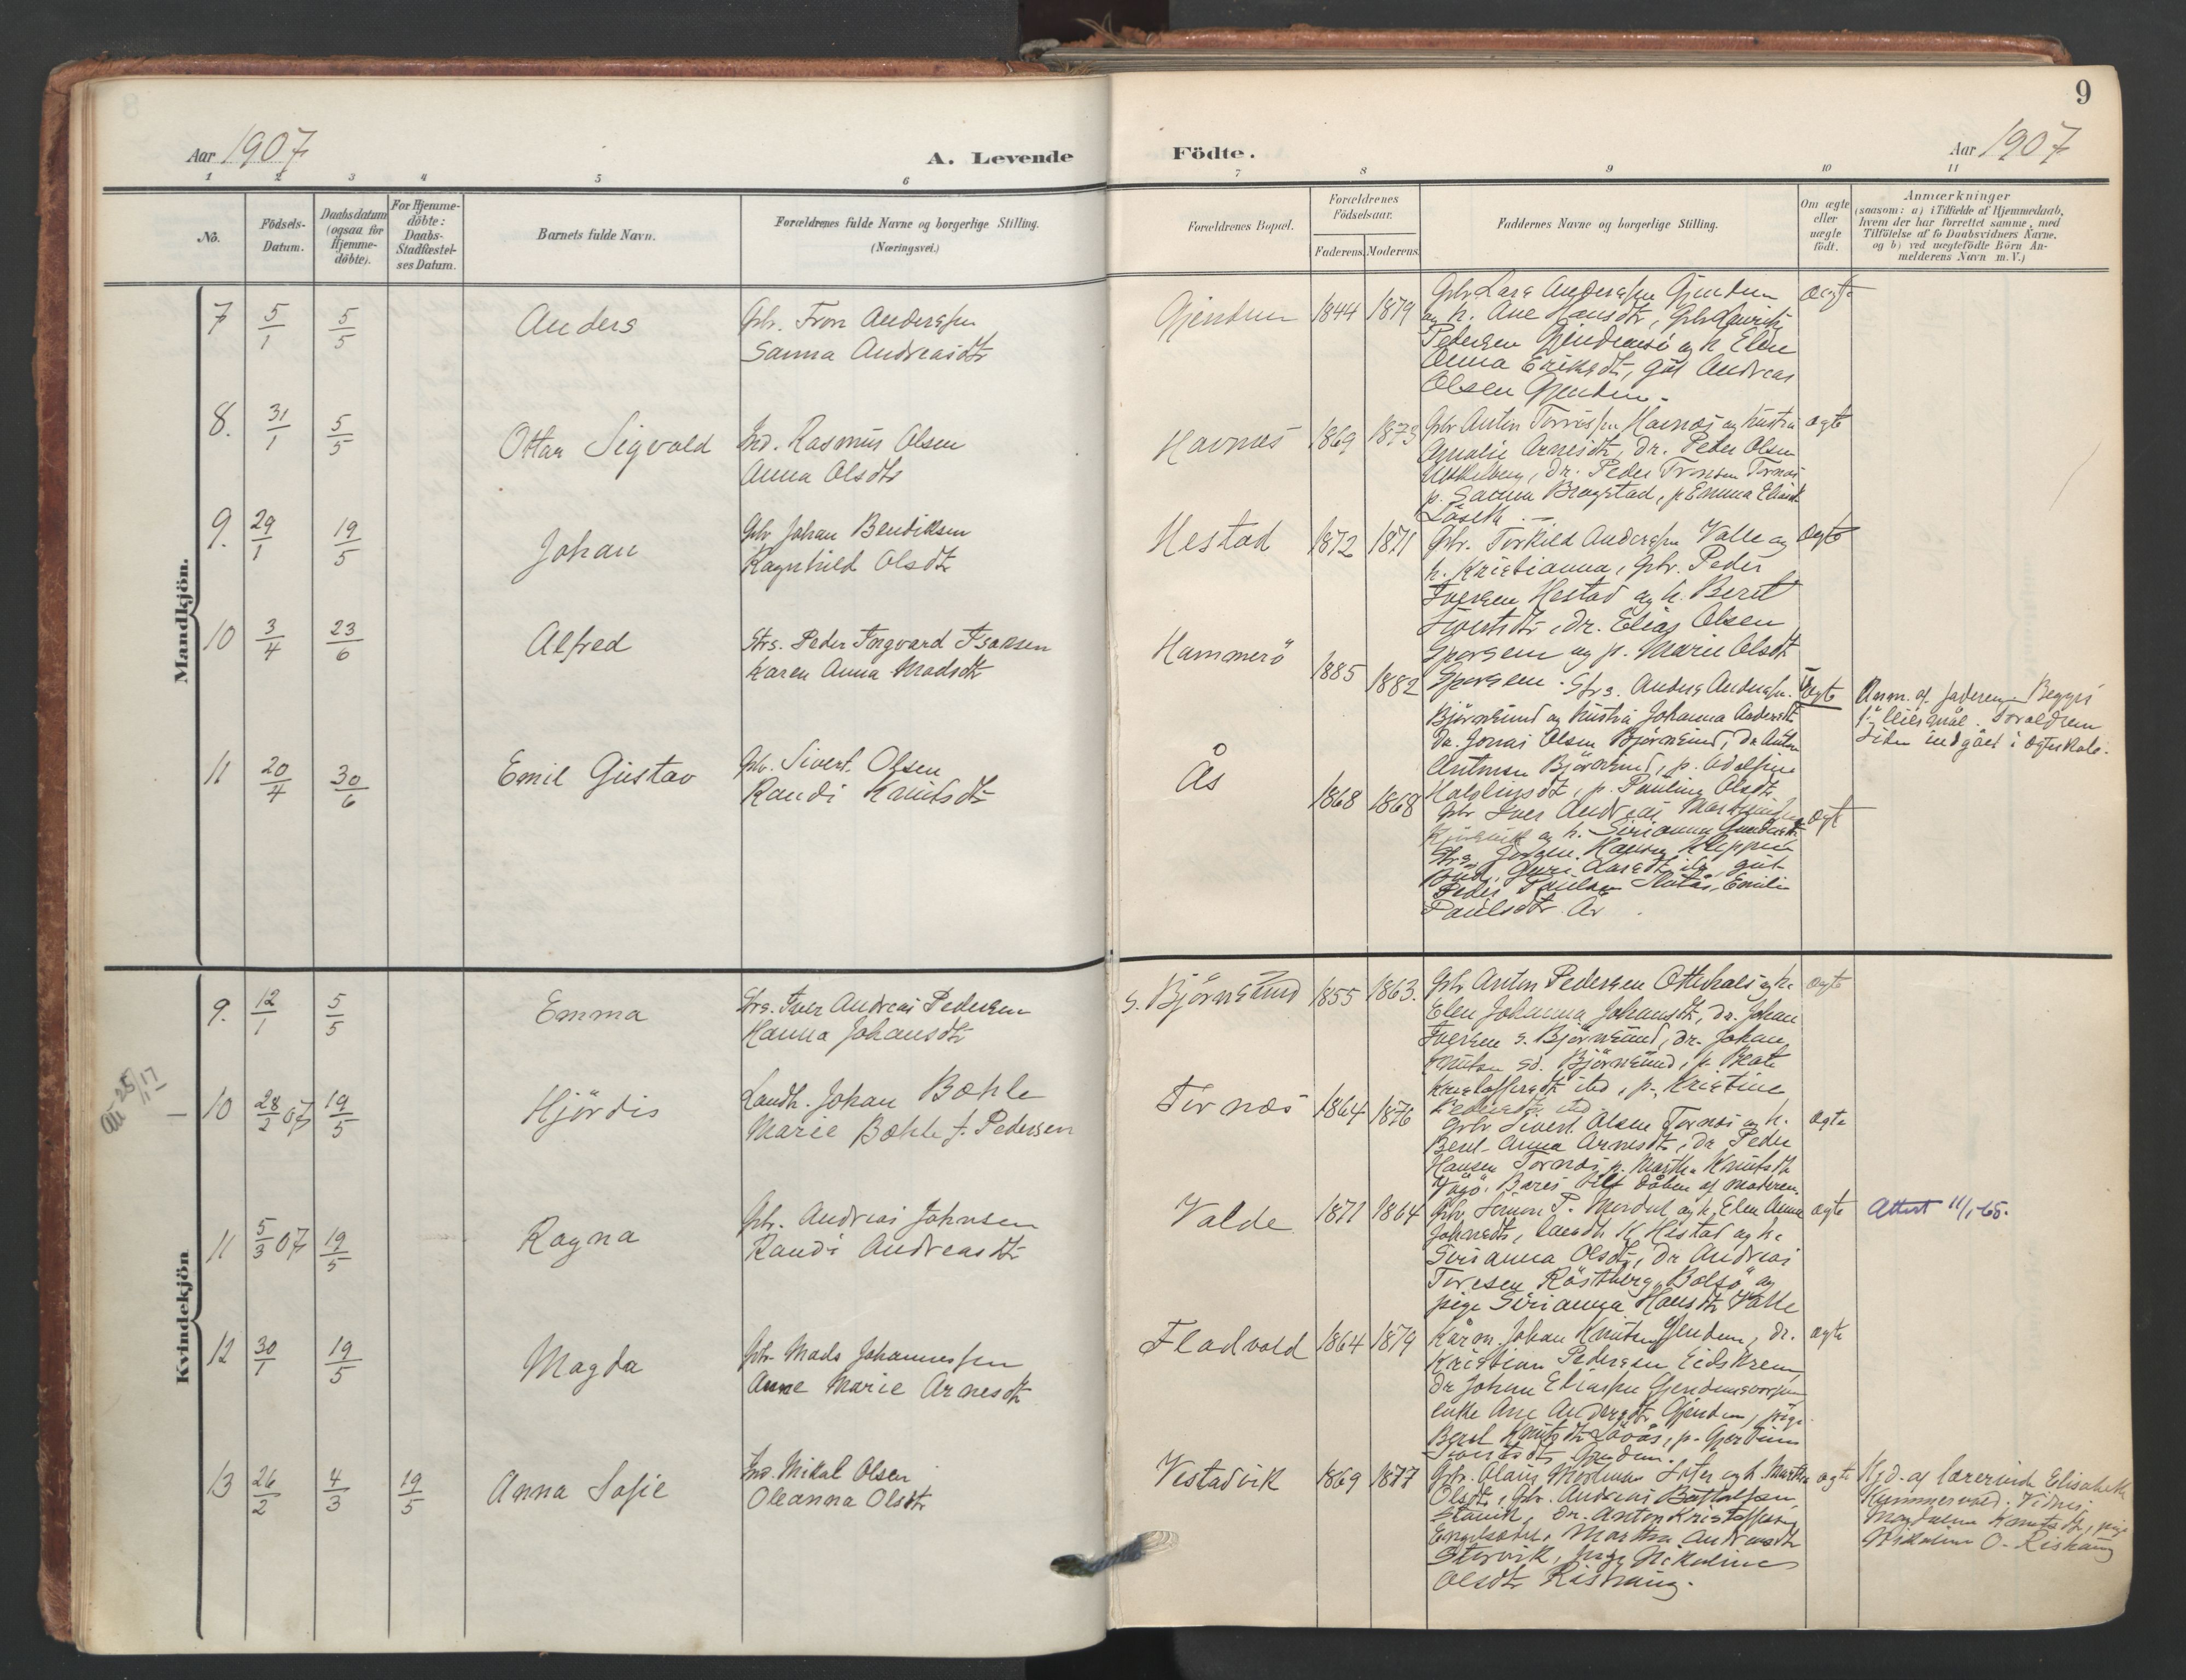 9
Aar 1907
A. Levende
Födte.
Aar 1907
1 2 3 4 5 6 7 8 9 10 11
No.
Födsels-
Datum.
Daabsdatum
(ogsaa for
Hjemme-
döbte).
For Hjemme-
döbte:
Daabs-
Stadfæstel-
ses Datum.
Barnets fulde Navn.
Forældrenes fulde Navne og borgerlige Stilling.
(Næringsvei.)
Forældrenes Bopæl.
Forældrenes
Födselsaar.
Faderens. Moderens.
Faddernes Navne og borgerlige Stilling.
Om ægte
eller
uægte
födt.
Anmærkninger
(saasom: a) i Tilfælde af Hjemmedaab,
hvem der har forrettet samme, med
Tilföielse af to Daabsvidners Navne,
og b) ved uægtefödte Börn An-
melderens Navn m. V.)
Mandkjön.
7 5/1 5/5 Anders
Gbr. Tron Anderssen
Sanna Andreasdtr
Gjendem 1844 1879
Gbr Lars Anderssen Gjendem
og h. Ane Hansdtr, Gbr Laurits
Pedersen Gjendemsö og h Elen
Anna Eriksdtr, gut Andreas
Olsen Gjendem.
ægte
8. 31/1 5/5 Ottar Sigvald
Ind. Rasmus Olsen
Anna Olsdtr
Havnæs 1869 1873
Gbr Anton Havnæs og hustru
Amalie Arnesdtr, Dr. Peder Olsen
Dr. Peder Tronsen Tornæs
p. Sanna Bragstad, p Emma
ægte
9. 29/1 19/5 Johan
Gbr Johan Bendiksen
Ragnhild Olsdtr
Hestad 1872 1871
Gbr. Torkild Anderssen Valle og
h. Kristianna, Gbr. Peder
Iversen Hestad og h. Berit
Sivertsdtr, Dr. Elias Olsen
og p. Marie Olsdtr
ægte
10 3/4 23/6 Alfred
Strs. Peder Ingvard Isaksen
Karen Anna Madsdtr
Hammerö 1885 1882
Strs. Anders Anderssen
Björnsund og hustru Johanna Andersdtr
Dr. Jonas Olsen Björnsund, Dr Anton
Antonsen Björnsund, p.
p. Pauline Olsdtr
Uægte
Anm. af faderen. Begges
1ste leiermål. Forældrene
siden indgået i ægteskab.
11 20/4 30/6 Emil Gustav
Gbr. Sivert Olsen
Randi Knutsdtr
Ås 1868 1868
Gbr Iver Andreas
og h. Serianna
Strs. Jörgen Hansen
Bud, Guri Larsdtr ibd, gut
Peder Paulsen Emilie
Paulsdtr Ås.
ægte
Kvindekjön
9. 12/1 5/5 Emma
Strs. Iver Andreas Pedersen
Hanna Johansdtr
s. Björnsund 1855 1863.
Gbr Anton Pedersen Otterhals og h.
Elen Johanna Johansdtr, Dr. Johan
Iversen s. Björnsund, Dr. Johan
Knutsen sd. Björnsund, p. Beate
Kristoffersdtr ibd, p. Kristine
Pedersdtr ibd
ægte
Att 25/11 17
10 28/2 07 19/5 Hjördis
Landh. Johan Bæhle
Marie Bæhle f. Pedersen
Tornæs 1864 1876
Gbr Sivert Olsen Tornæs og h.
Berit Anna Arnesdtr, Dr Peder
Hansen Tornæs, p. Martha Knutsdtr
Vågö. Baaret til dåben af moderen.
ægte
11 5/3 07 19/5 Ragna
Gbr. Andreas Johnsen
Randi Andreasdtr
Valde 1871 1864
Gbr. Simon P. Mordal og h. Elen Anna
Johnsdtr, K Hestad og h.
Serianna Olsdtr, Dr Andreas
Toresen Röstberg, Bolsö og
pige Serianna Hansdtr Valle
ægte
Attest 11/1-65.
12 30/1 19/5 Magda
Gbr. Mads Johannessen
Anne Marie Arnesdtr
Fladvold 1864 1879
Kårm. Johan Knutsen Gjendem, Dr.
Kristian Pedersen Eidskrem,
Dr Johan Eliassen
enke Ane Andersdtr Gjendem, pige
Berit Knutsdtr Löväs, p.
Sivertsdtr Gjendem.
ægte
13 26/2 4/3 19/5 Anna Sofie
Ind. Mikal Olsen
Oleanna Olsdtr
Vestadvik 1869 1877
Gbr. Olaus og h. Martha
Olsdtr, Gbr. Andreas
Dr. Anton Kristoffersen
Martha Andreasdtr
pige Nikoline
Olsdtr Rishaug.
ægte
Hjd. af lærerinde Elisabeth
Kummervold. Vidner:
Magdalena Knutsdtr, pige
Nikoline O. Rishaug